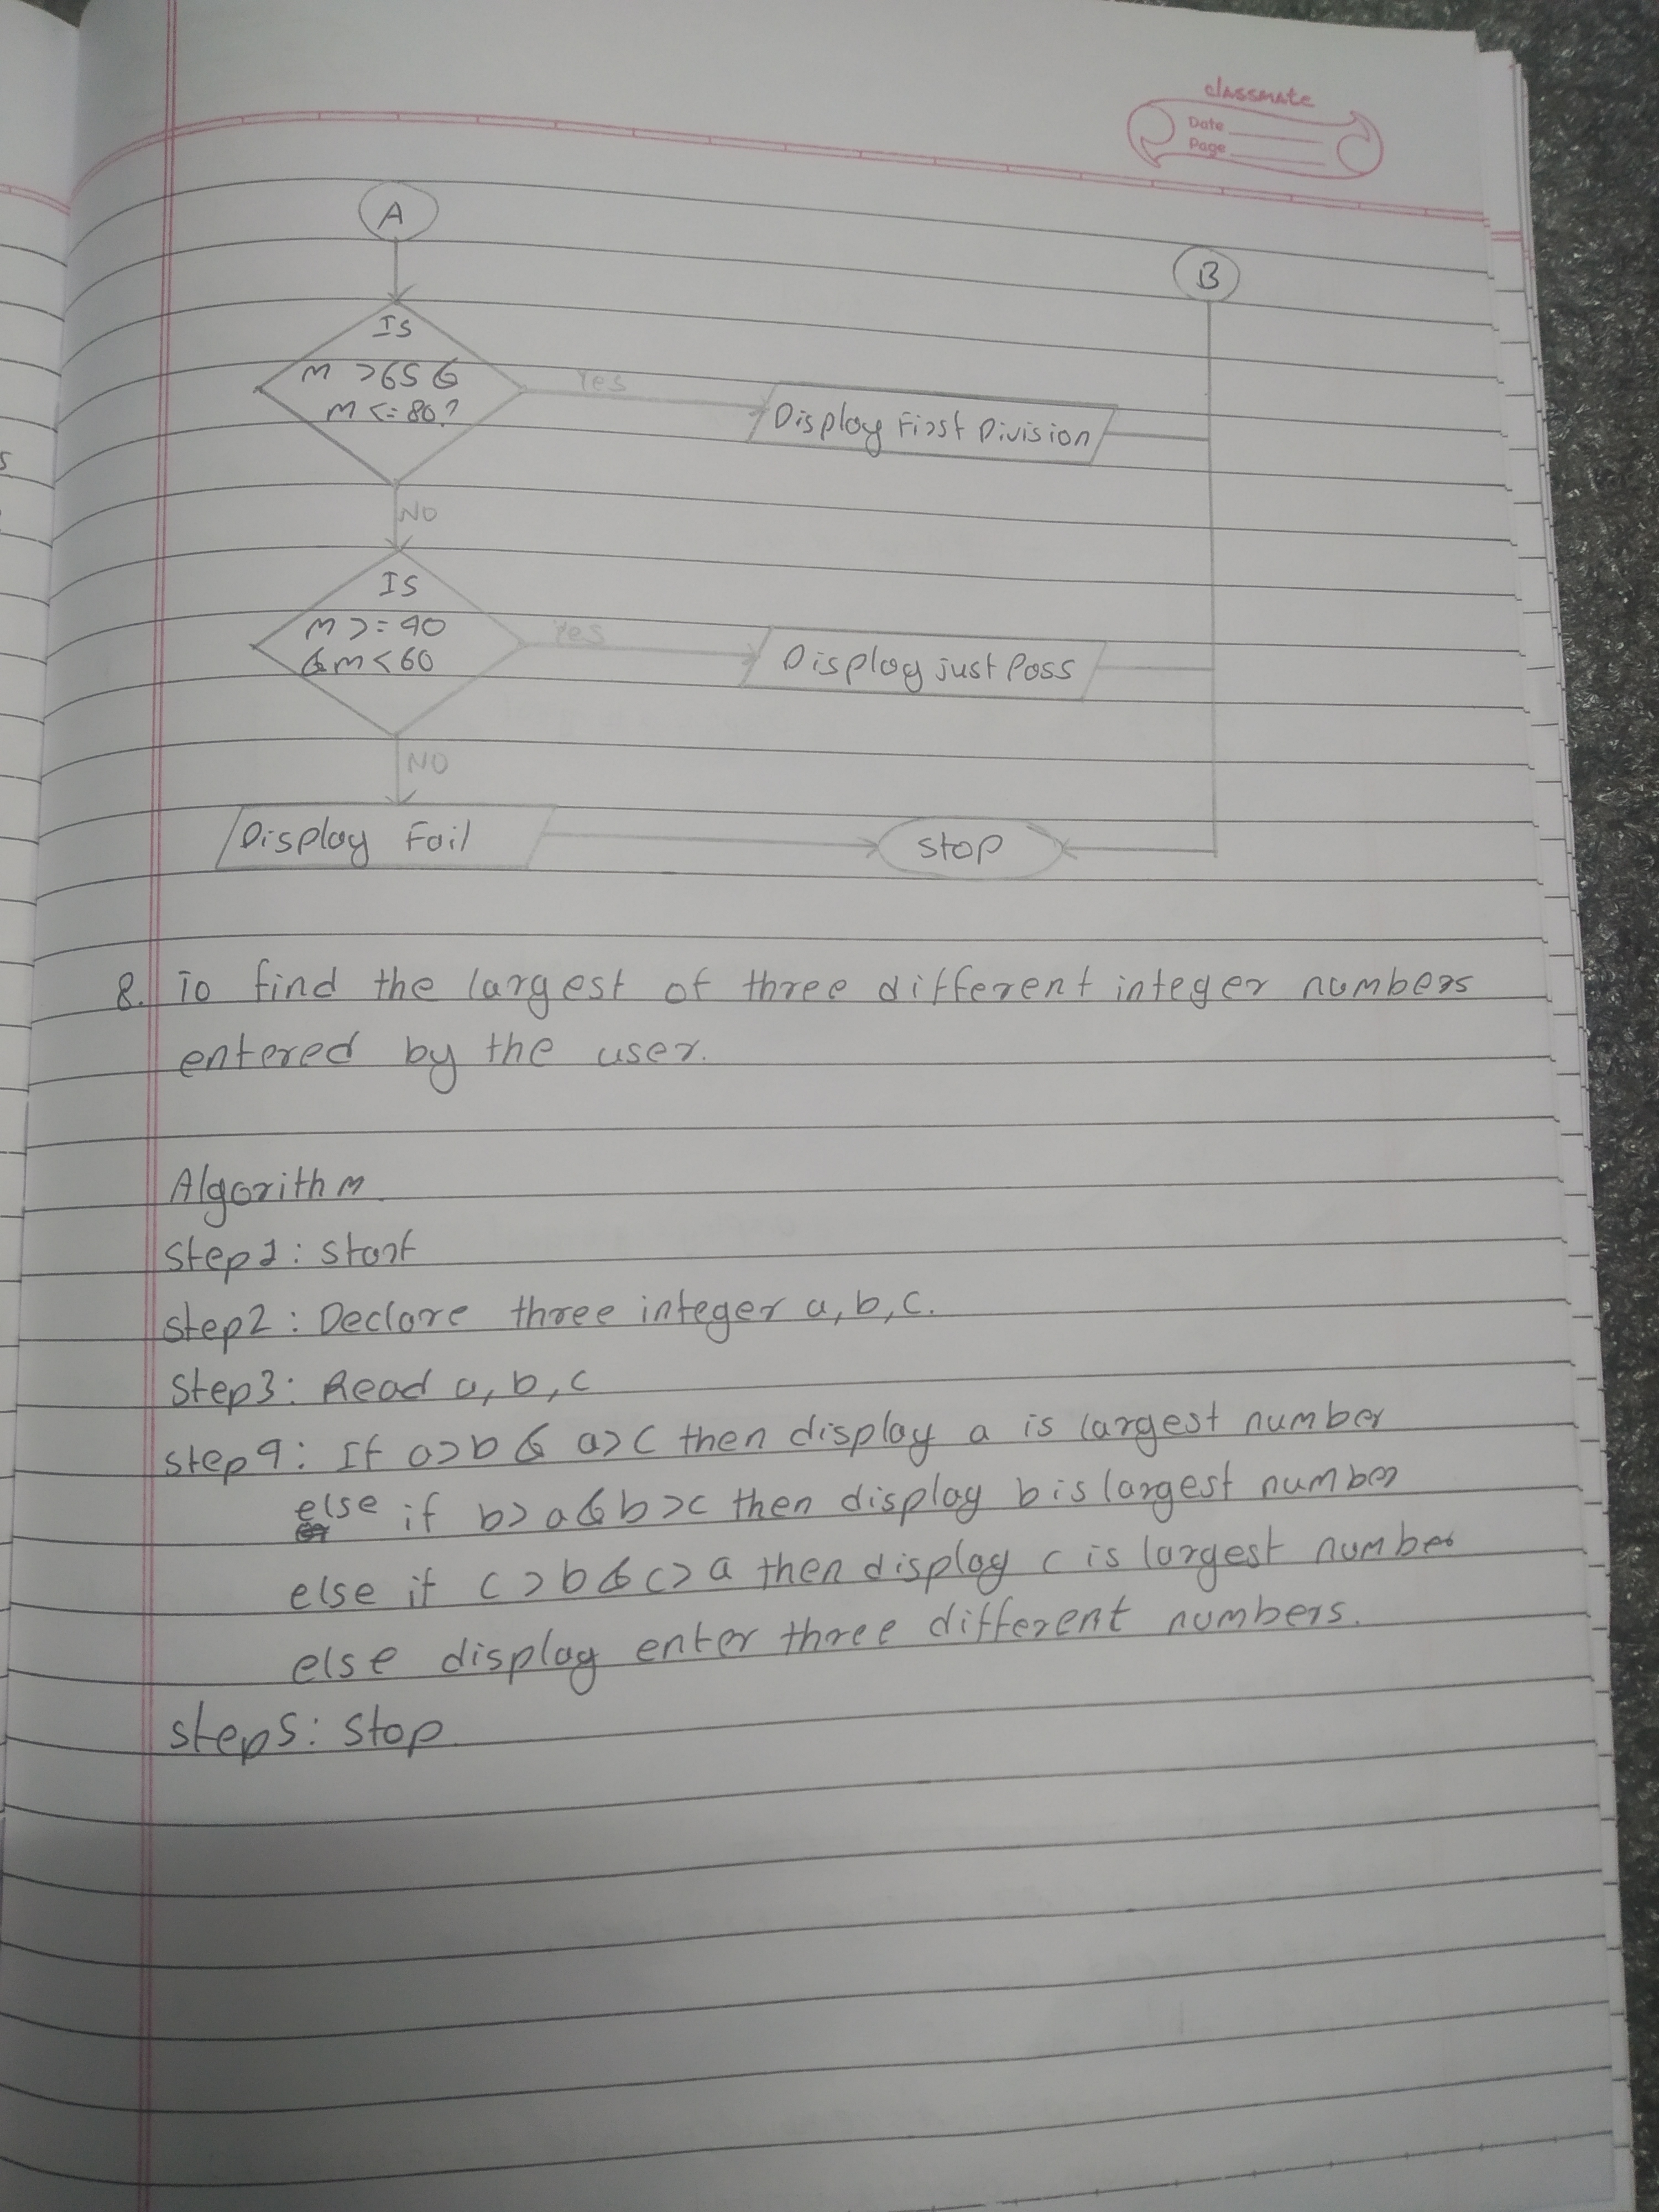 classmate
Date
Page
A
B
Is
m >65 &
m <= 80?
Yes
Display First Division
NO
Is
m >= 40
& m < 60
Yes
Display just Pass
NO
Display Fail
stop
8. To find the largest of three different integer numbers
entered by the user.
Algorithm
Step1: Start
Step2: Declare three integer a, b, c.
Step3: Read a, b, c
Step4: If a>b & a>c then display a is largest number
else if b>a & b>c then display b is largest number
else if c>b & c>a then display c is largest number
else display enter three different numbers.
Step5: Stop.